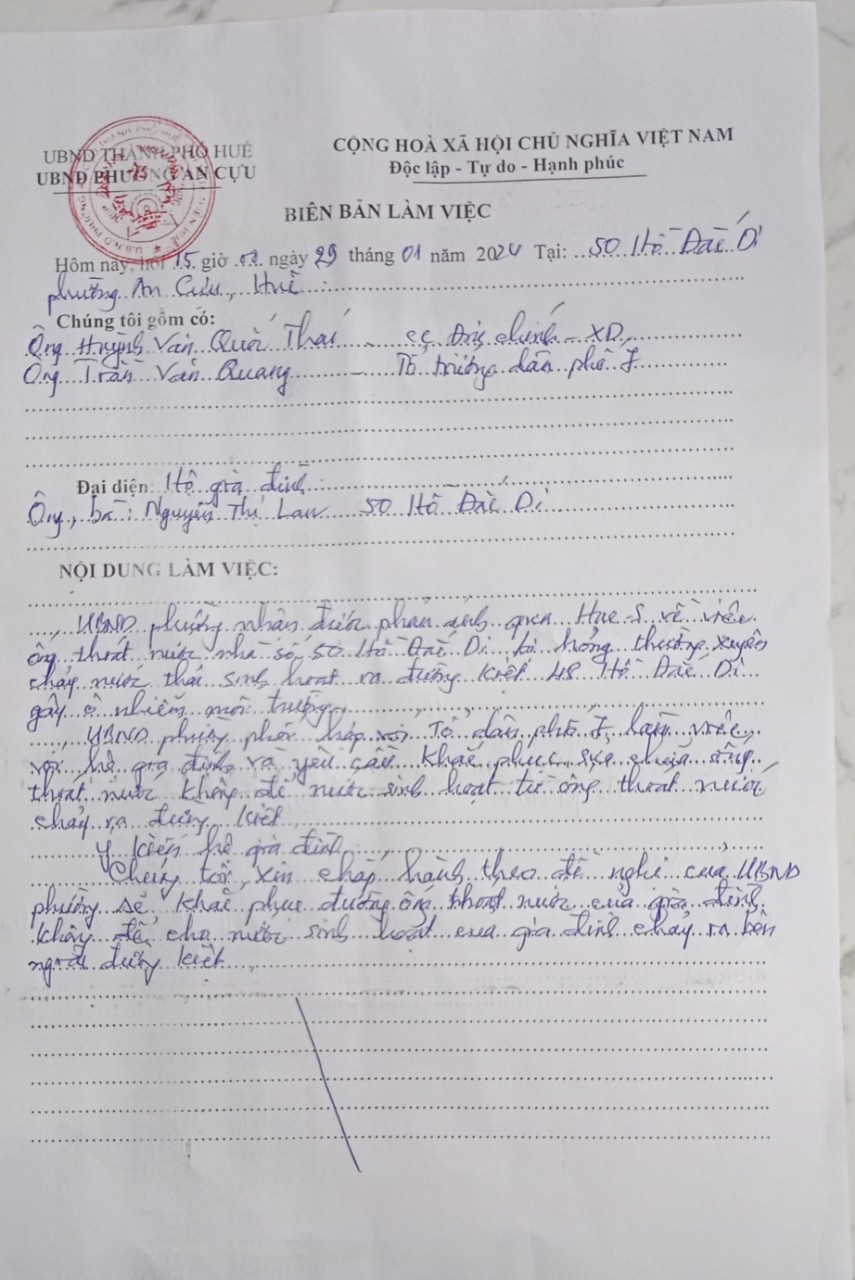 UBND THÀNH PHỐ HUẾ
UBND PHƯỜNG AN CỰU
CỘNG HOÀ XÃ HỘI CHỦ NGHĨA VIỆT NAM
Độc lập - Tự do - Hạnh phúc
BIÊN BẢN LÀM VIỆC
Hôm nay, hồi 15 giờ 02 ngày 29 tháng 01 năm 2024 Tại: 50 Hồ Đắc Di
phường An Cựu, Huế
Chúng tôi gồm có:
Ông Huỳnh Văn Quốc Thái - cc Địa chính - XD
Ông Trần Văn Quang - Tổ trưởng dân phố 7
Đại diện: Hộ gia đình
Ông, bà: Nguyễn Thị Lan 50 Hồ Đắc Di
NỘI DUNG LÀM VIỆC:
UBND phường nhận được phản ánh qua Hue-S về việc
ống thoát nước nhà số 50 Hồ Đắc Di bị hỏng thường xuyên
chảy nước thải sinh hoạt ra đường kiệt 48 Hồ Đắc Di
gây ô nhiễm môi trường
UBND phường phối hợp với Tổ dân phố 7 làm việc
với hộ gia đình và yêu cầu khắc phục sửa chữa ống
thoát nước không để nước sinh hoạt từ ống thoát nước
chảy ra đường kiệt
Ý kiến hộ gia đình
Chúng tôi xin chấp hành theo đề nghị của UBND
phường sẽ khắc phục đường ống thoát nước của gia đình
không để cho nước sinh hoạt của gia đình chảy ra bên
ngoài đường kiệt